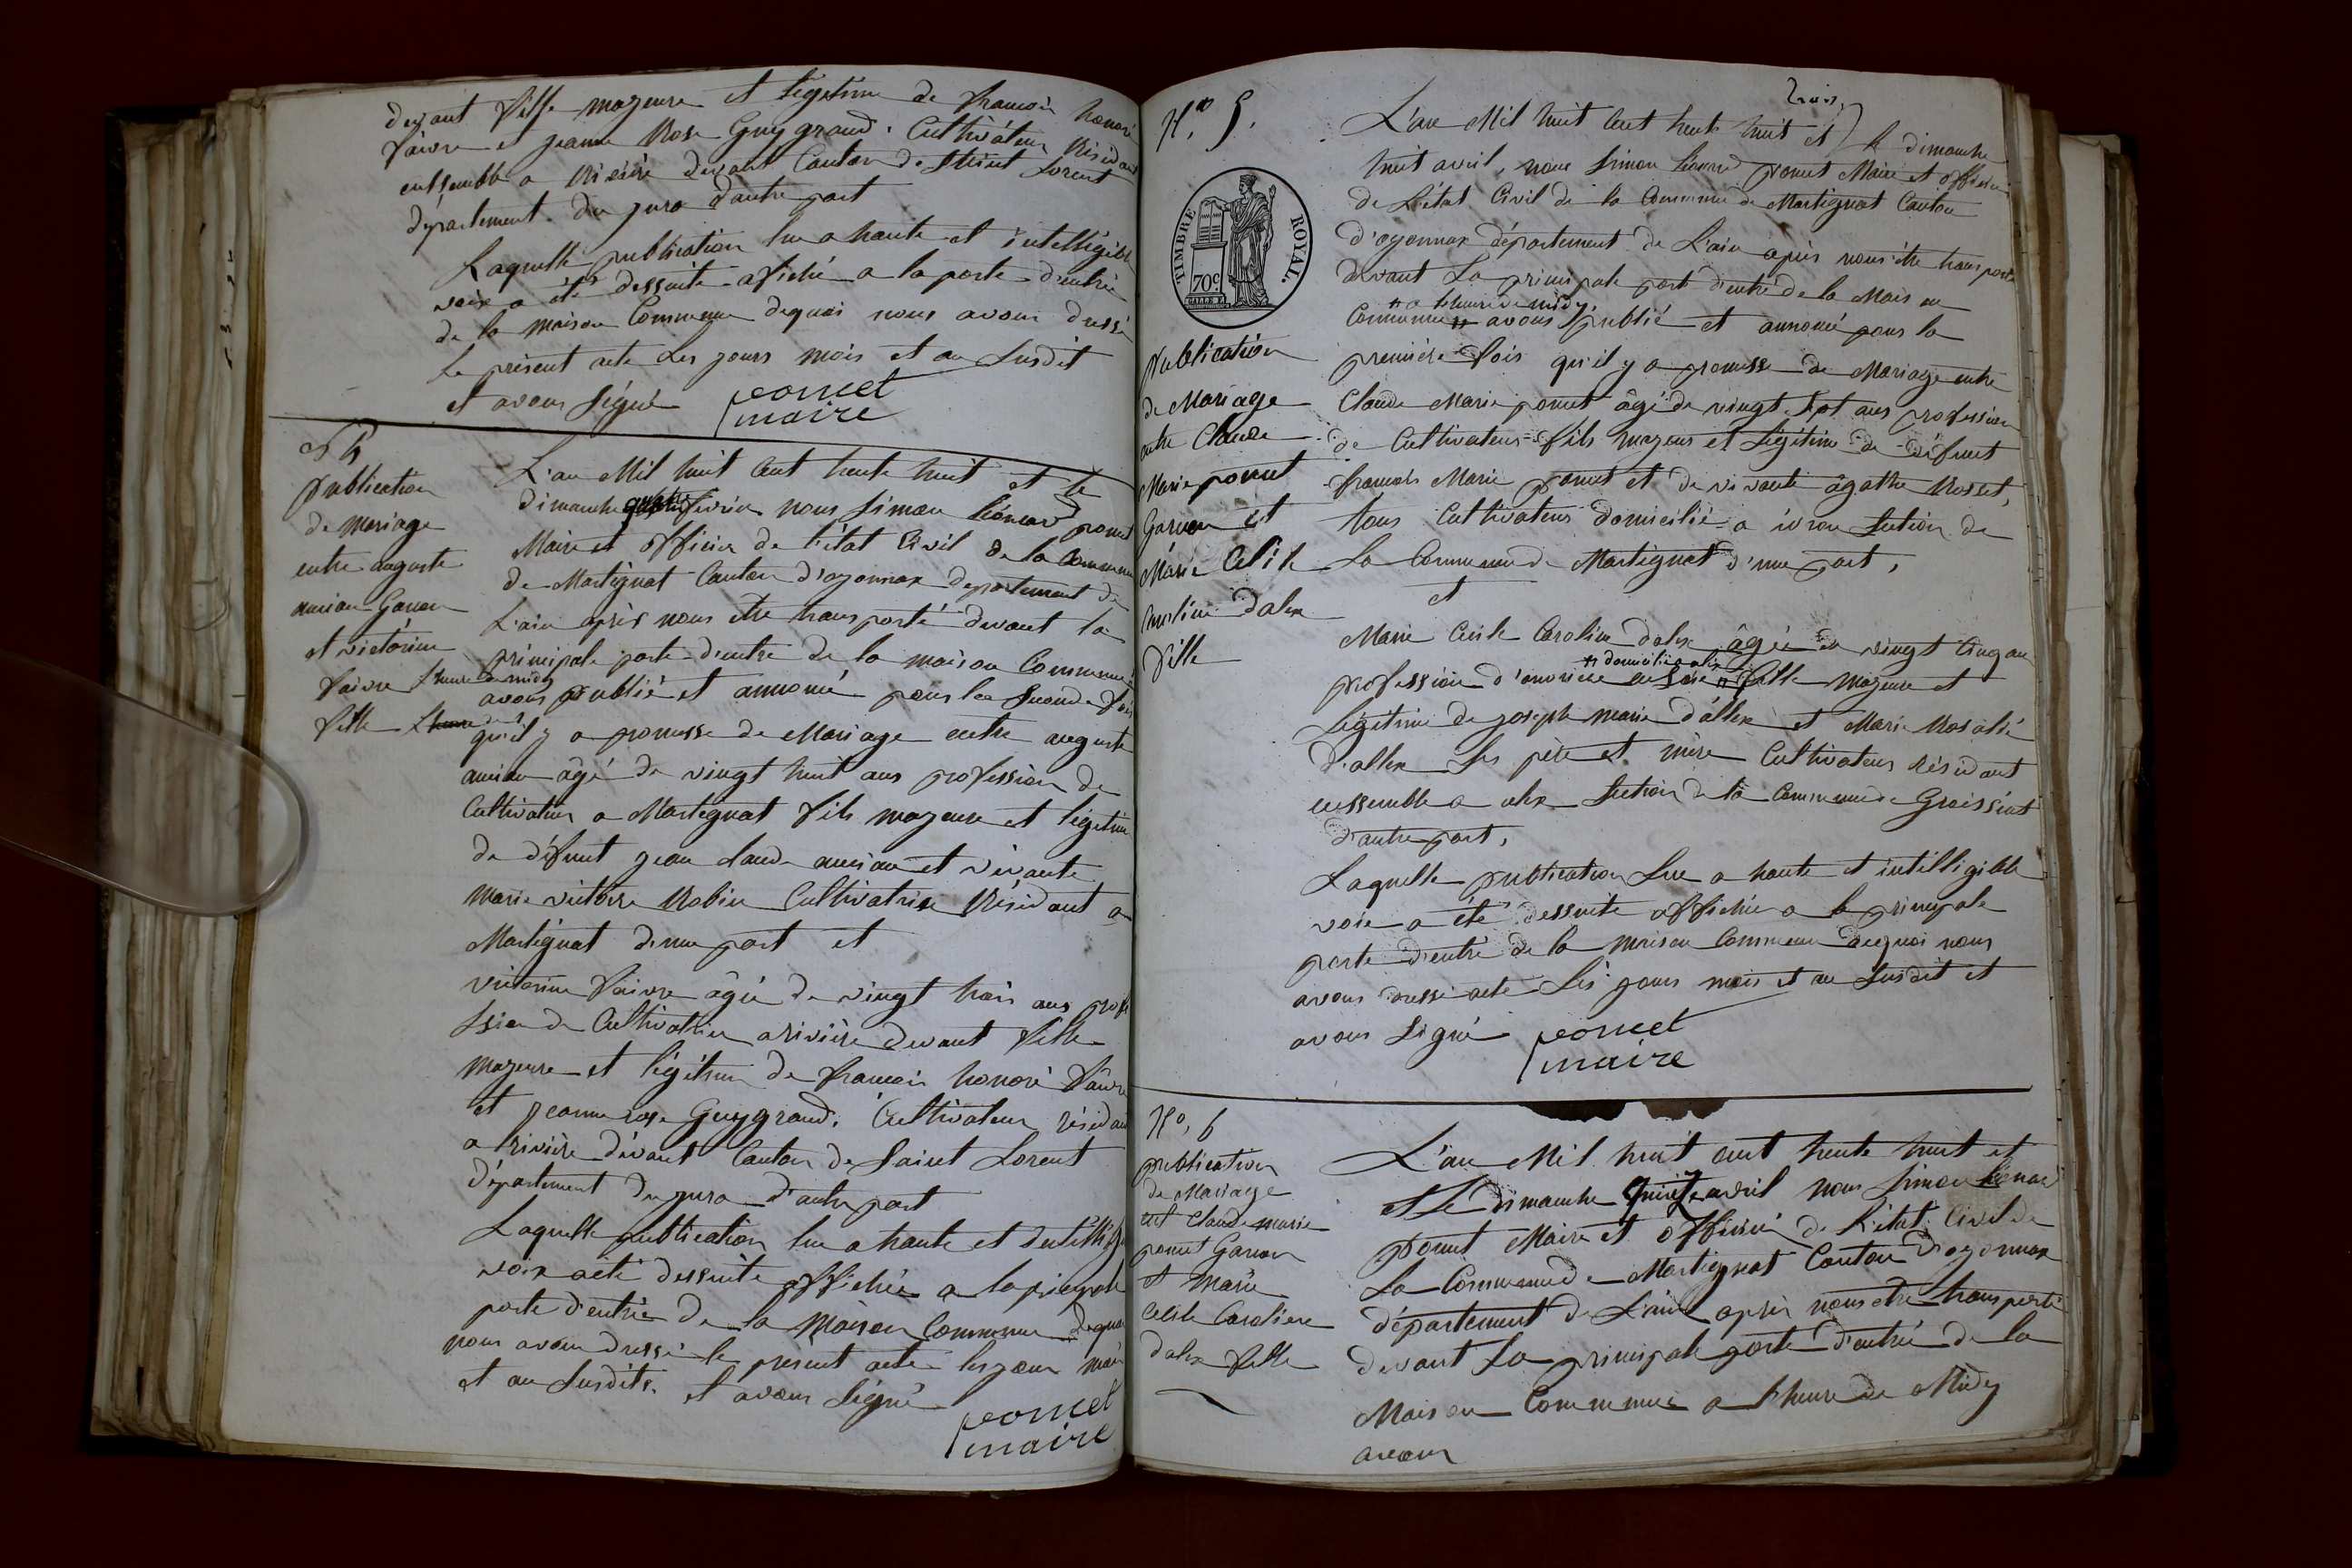 devant fille majeure et légitime de francois honoré
faivre et jeanne Rose Guygrand. Cultivateur Résidant
enssemble a Rivière devant Canton de Saint Lorent
département du jura d'autre part
Laquelle publication lue a haute et intelligible
voix a été dessuite afichée a la porte d'entrée
de la maison Commune dequoi nous avons dressé
le présent acte les jours mois et an susdit
et avons signé
poncet
maire
publication
de mariage
entre auguste
Garcon
et victorine
faivre
fille
L'an Mil huit cent trente huit et le
dimanche fevrier nous Simon Léonard poncet
Maire et officier de l'état Civil de la Commune
de Martignat Canton d'oyonnax departement de
L'ain après nous être transporté devant la
principale porte d'entré de la maison Commune
l'heure de midy
avons publié et annoncé pour la seconde fois
qu'il y a promesse de Mariage entre auguste
âgé de vingt huit ans profession de
Cultivateur a Martignat fils majeure et légitime
de défunt jean claude et vivante
Marie victoire Robin Cultivatrice Résidant a
Martignat d'une part et
victorine faivre âgée de vingt trois ans profe
ssion de Cultivatrice a rivière devant fille
majeure et légitime de francois honoré faivre
et jeanne rose Guygrand. Cultivateur résidant
a rivière devant Canton de Saint Lorent
département du jura d'autre part
Laquelle publication lue a haute et
voix a été dessuite affichée a la principale
porte d'entrée de la Maison Commune dequoi
nous avons dressé le présent acte les jour mois
et an susdits. et avons signé
poncet
maire
N.° 5.
TIMBRE ROYAL.
70c
publication
de Mariage
entre Claude
Marie poncet
Garcon et
Marie Cécile
Caroline dalex
fille
L'an Mil huit Cent trente huit et le dimanche
huit avril, nous Simon Léonard poncet Maire et officier
de L'état Civil de la Commune de Martignat Canton
d'oyonnax département de L'ain après nous être transporté
devant La principale porte d'entré de la Maison
a l'heure de midy
Commune avons publié et annoncé pour la
première fois qu'il y a promesse de Mariage entre
Claude Marie poncet âgé de vingt sept ans profession
de Cultivateur fils majeur et Légitime de défunt
francois Marie poncet et de vivante âgathe Rosset,
tous Cultivateurs domicilié a section de
La Commune de Martignat d'une part,
et
Marie Cécile Caroline dalex âgée de vingt Cinq ans
domiciliée a alex
profession d'ouvrière en soie fille majeure et
Légitime de joseph marie d'allex et Marie Rosalie
d'allex Ses père et mère Cultivateurs résidant
enssemble a alex Section de la Commune de Groissiat
d'autre part,
Laquelle publication Lue a haute et intelligible
voie a été dessuite affichée a la principale
porte d'entré de la maison Commune dequoi nous
avons dressé acte Les jours mois et an susdit et
avons signé
poncet
maire
N°. 6
publication
de Mariage
ent Claude marie
poncet Garcon
et Marie
Cécile Caroline
dalex fille
L'an Mil huit cent trente huit et
et Le dimanche quinze avril nous Simon Léonard
poncet Maire et officier de L'état Civil de
La Commune de Martignat Canton d'oyonnax
département de L'ain après nous être transporté
devant La principale porte d'entrée de la
Maison Commune a l'heure de Midy
avons